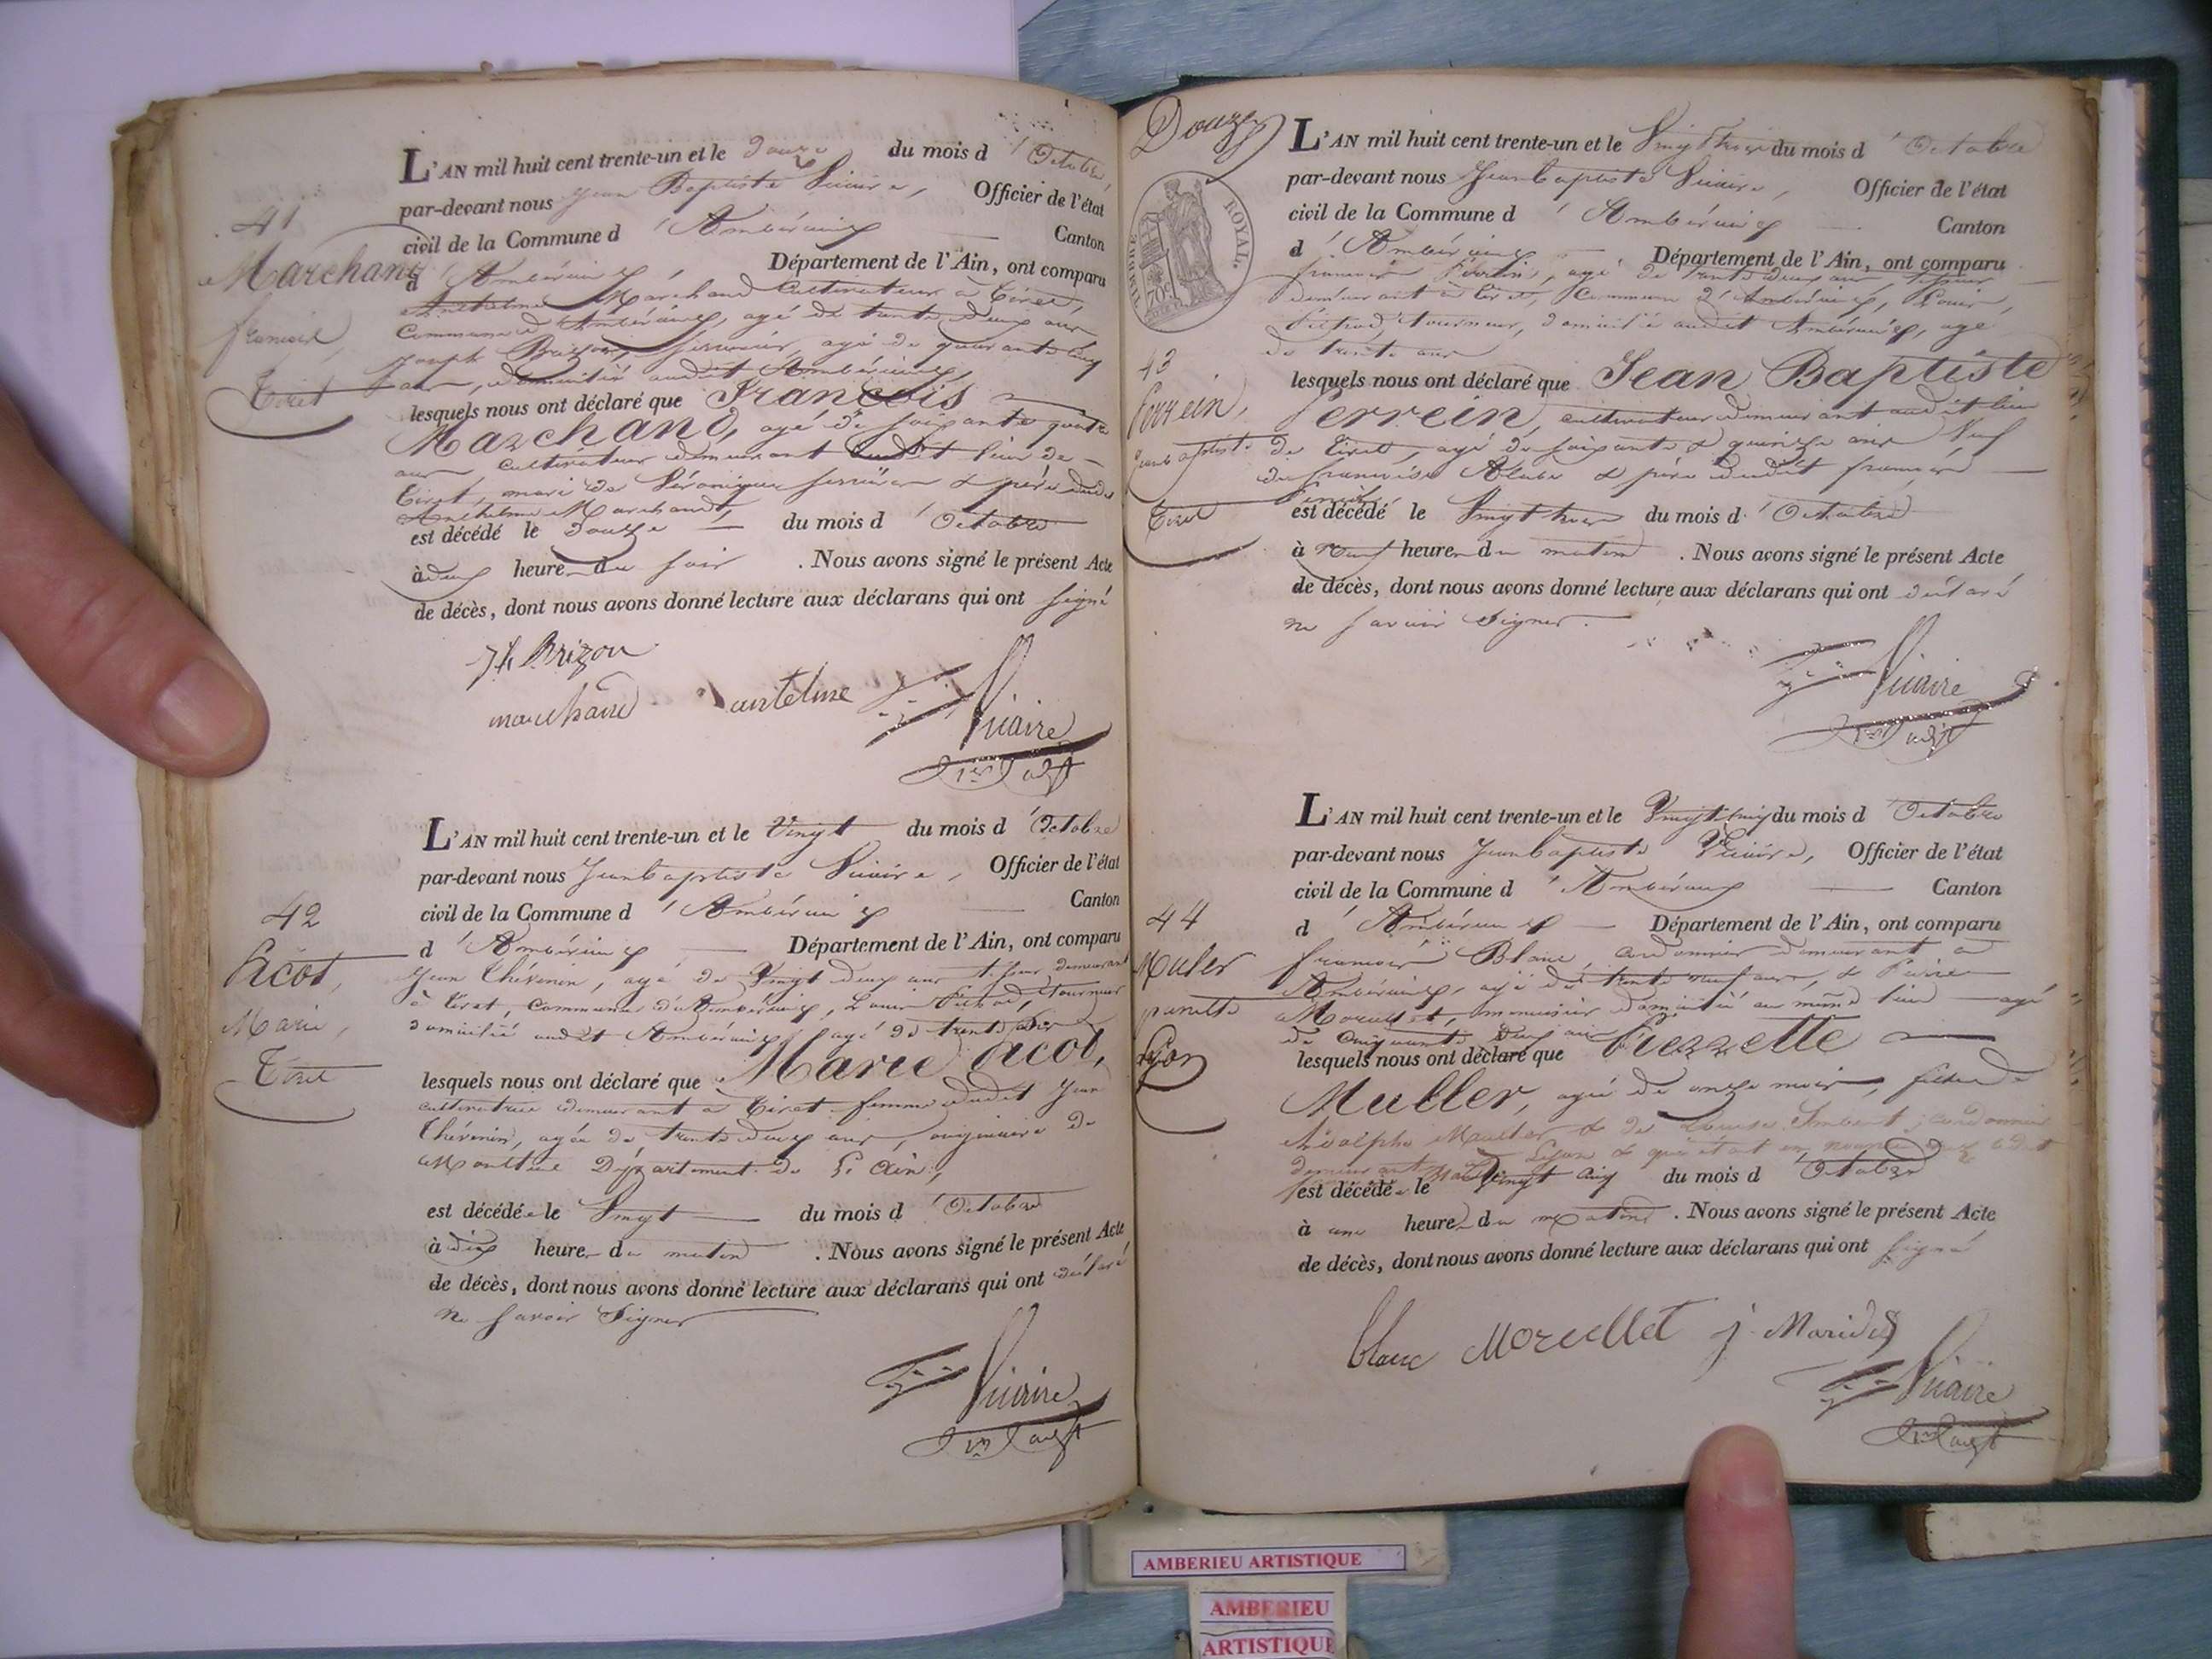 41
Marchand
françois
Tiret
L'AN mil huit cent trente-un et le Douze du mois d'Octobre,
par-devant nous Jean Baptiste Vicaire, Officier de l'état
civil de la Commune d'Ambérieux Canton
d'Ambérieux, Département de l'Ain, ont comparu
Anthelme Marchand Cultivateur à Tiret,
Commune d'Ambérieux, agé de trente deux ans
Joseph Brizon, agé de quarante cinq
ans, domicilié audit Ambérieux,
lesquels nous ont déclaré que François
Marchand, agé de soixante quatre
ans cultivateur demeurant audit lieu de
Tiret, mari de Véronique & père dudit
Anthelme Marchand,
est décédé le Douze du mois d'Octobre
à deux heures du soir . Nous avons signé le présent Acte
de décès, dont nous avons donné lecture aux déclarans qui ont signé
Jh Brizon
marchand antelme Vicaire
1er adjt
42
Pacot,
Marie,
Tiret
L'AN mil huit cent trente-un et le Vingt du mois d'Octobre
par-devant nous Jean baptiste Vicaire, Officier de l'état
civil de la Commune d'Ambérieux Canton
d'Ambérieux Département de l'Ain, ont comparu
Jean Thévenin, agé de Vingt deux ans demeurant
à Tiret, Commune d'Ambérieux, Louis tourneur
domicilié audit Ambérieux agé de trente ans
lesquels nous ont déclaré que Marie Pacot,
cultivatrice demeurant à Tiret femme dudit Jean
Thévenin, agée de trente deux ans, originaire de
Département de l'Ain,
est décédée le Vingt du mois d'Octobre
à dix heures du matin . Nous avons signé le présent Acte
de décès, dont nous avons donné lecture aux déclarans qui ont déclaré
ne savoir signer
Vicaire
1er adjt
Douze
TIMBRE ROYAL.
70c
43
Perrein,
Jean baptiste
Tiret
L'AN mil huit cent trente-un et le Vingt trois du mois d'Octobre
par-devant nous Jean baptiste Vicaire, Officier de l'état
civil de la Commune d'Ambérieux Canton
d'Ambérieux Département de l'Ain, ont comparu
françois Perrein, agé de trente deux ans,
demeurant à Tiret, Commune d'Ambérieux, Louis
tourneur, domicilié audit Ambérieux, agé
de trente ans
lesquels nous ont déclaré que Jean Baptiste
Perrein, cultivateur demeurant audit lieu
de Tiret, agé de soixante & quinze ans Veuf
de françoise & père dudit françois
Perrein
est décédé le Vingt trois du mois d'Octobre
à neuf heures du matin . Nous avons signé le présent Acte
de décès, dont nous avons donné lecture aux déclarans qui ont déclaré
ne savoir signer.
Vicaire
1er adjt
44
Muler
pierrette
Lyon
L'AN mil huit cent trente-un et le Vingt cinq du mois d'Octobre
par-devant nous Jean baptiste Vicaire, Officier de l'état
civil de la Commune d'Ambérieux Canton
d'Ambérieux Département de l'Ain, ont comparu
françois Blanc, cordonnier demeurant à
Ambérieux, agé de trente neuf ans, & Pierre
Morcellet, menuisier domicilié au même lieu agé
de cinquante deux ans
lesquels nous ont déclaré que Pierrette
Muller, agée de onze mois, fille de
Adolphe Muller & de Louise Imbert, cordonnier
demeurant à Lyon & qui était en nourrice
est décédée le Vingt cinq du mois d'Octobre
à une heure du matin . Nous avons signé le présent Acte
de décès, dont nous avons donné lecture aux déclarans qui ont signé
blanc Morcellet
Vicaire
1er adjt
AMBERIEU ARTISTIQUE
AMBERIEU
ARTISTIQUE